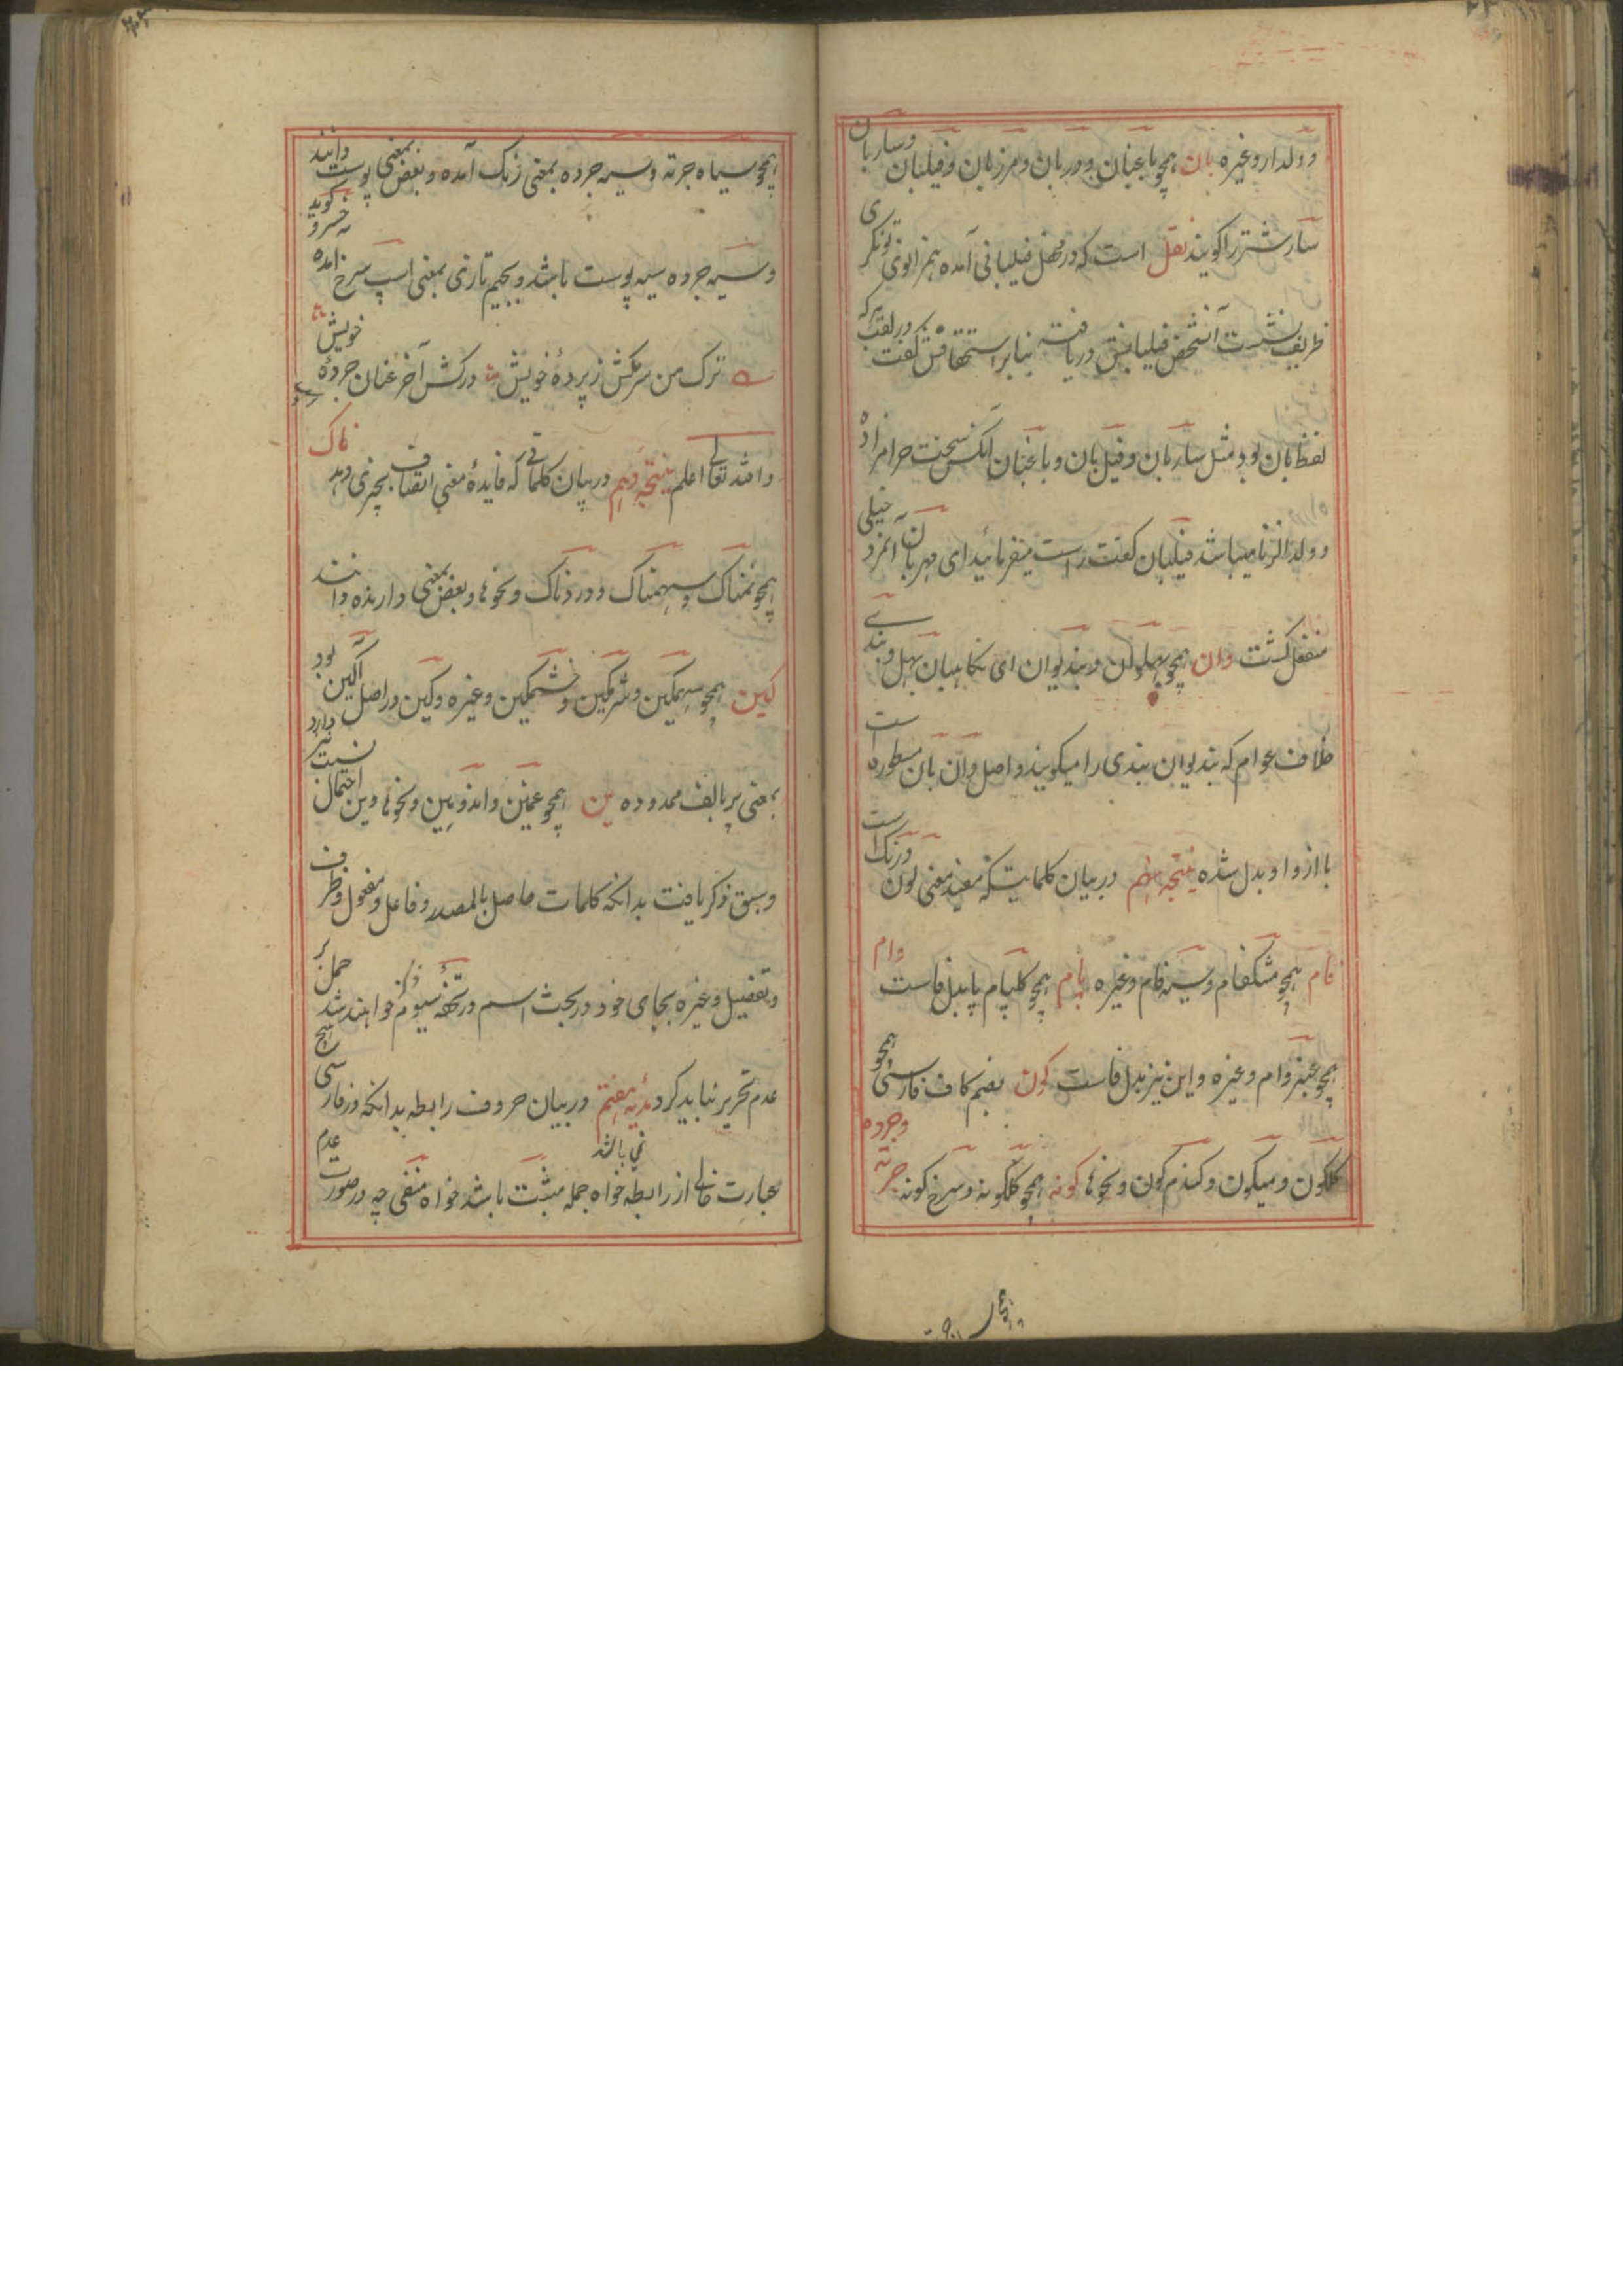 و ولدار وغیره بان همچو باغبان و دربان و مرزبان و فیلبان و ساربان
سار شتر را گویند نقل است که در محفل فیلبانی آمده همزانوی تونگری
ظریف نشست آنشخص فیلبانش دریافته بنابر استحقاقش گفت در لقب هر که
لفظ بان بود مثل ساربان و فیل بان و باغبان آنکس سخت حرامزاده
و ولد الزنا میباشد فیلبان گفت راست میفرمائید ای مهربان آنمرد خیلی
منفعل گشت وان همچو بهلوان و بندیوان ای نگاهبان بهل و بندی
خلاف عوام که بندیوان بندی را میگویند و اصل وان بان مسطوره است
با از واو بدل شده نتیجه نهم در بیان کلماتیکه مفید معنی لون و رنگ است
فام همچو مشکفام و سیه فام و غیره پام همچو کلپام پا بدل فاست وام
همچو عنبر وام و غیره و این نیز بدل فاست گون بضم کاف فارسی همچو
گلگون و میگون و گندم گون و نحوها گونه همچو گلگونه و سرخ گونه جرته وجرده
همچو سیاه جرته و سیه جرده بمعنی رنگ آمده و بعض بمعنی پوست دانند
و سیه جرده سیه پوست باشد و بجیم تازی بمعنی اسپ سرخ آمده خسرو گوید
ترک من سرمکش ز پردهٔ خویش درکش آخر عنان جردهٔ خویش
والله تعالی اعلم نتیجه دهم در بیان کلماتی که فایدهٔ معنی اتصاف بچیزی دهد ناک
همچو نمناک و سهمناک و دردناک و نحوها و بعض بمعنی دارنده دانند
گین همچو سهمگین و شرمگین و خشمگین و غیره و گین در اصل آگین بود
بمعنی پر بالف ممدوده ین همچو غمین و اندوهین و نحوها وین احتمال نسبت نیز دارد
و سبق ذکر یافت بدانکه کلمات حاصل بالمصدر و فاعل و مفعول و ظرف
و تفضیل و غیره بجای خود در بحث اسم در تحفهٔ سیوم ذکر خواهند شد حمل بر
عدم تحریر نباید کرد هدیهٔ هفتم در بیان حروف رابطه بدانکه در فارسی هیچ
عبارت خالی از رابطه نمی باشد خواه جمله مثبت باشد خواه منفی چه در صورت عدم